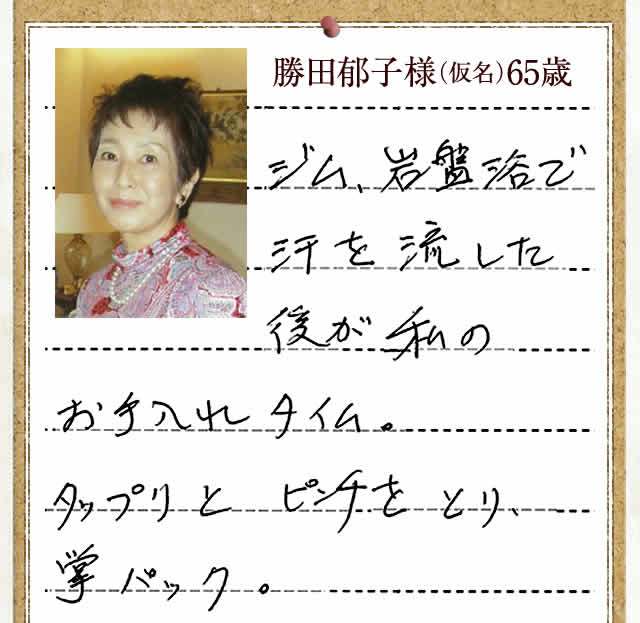 勝田郁子様(仮名)65歳
ジム、岩盤浴で
汗を流した
後が私の
お手入れタイム。
タップリとピンチをとり、
掌パック。